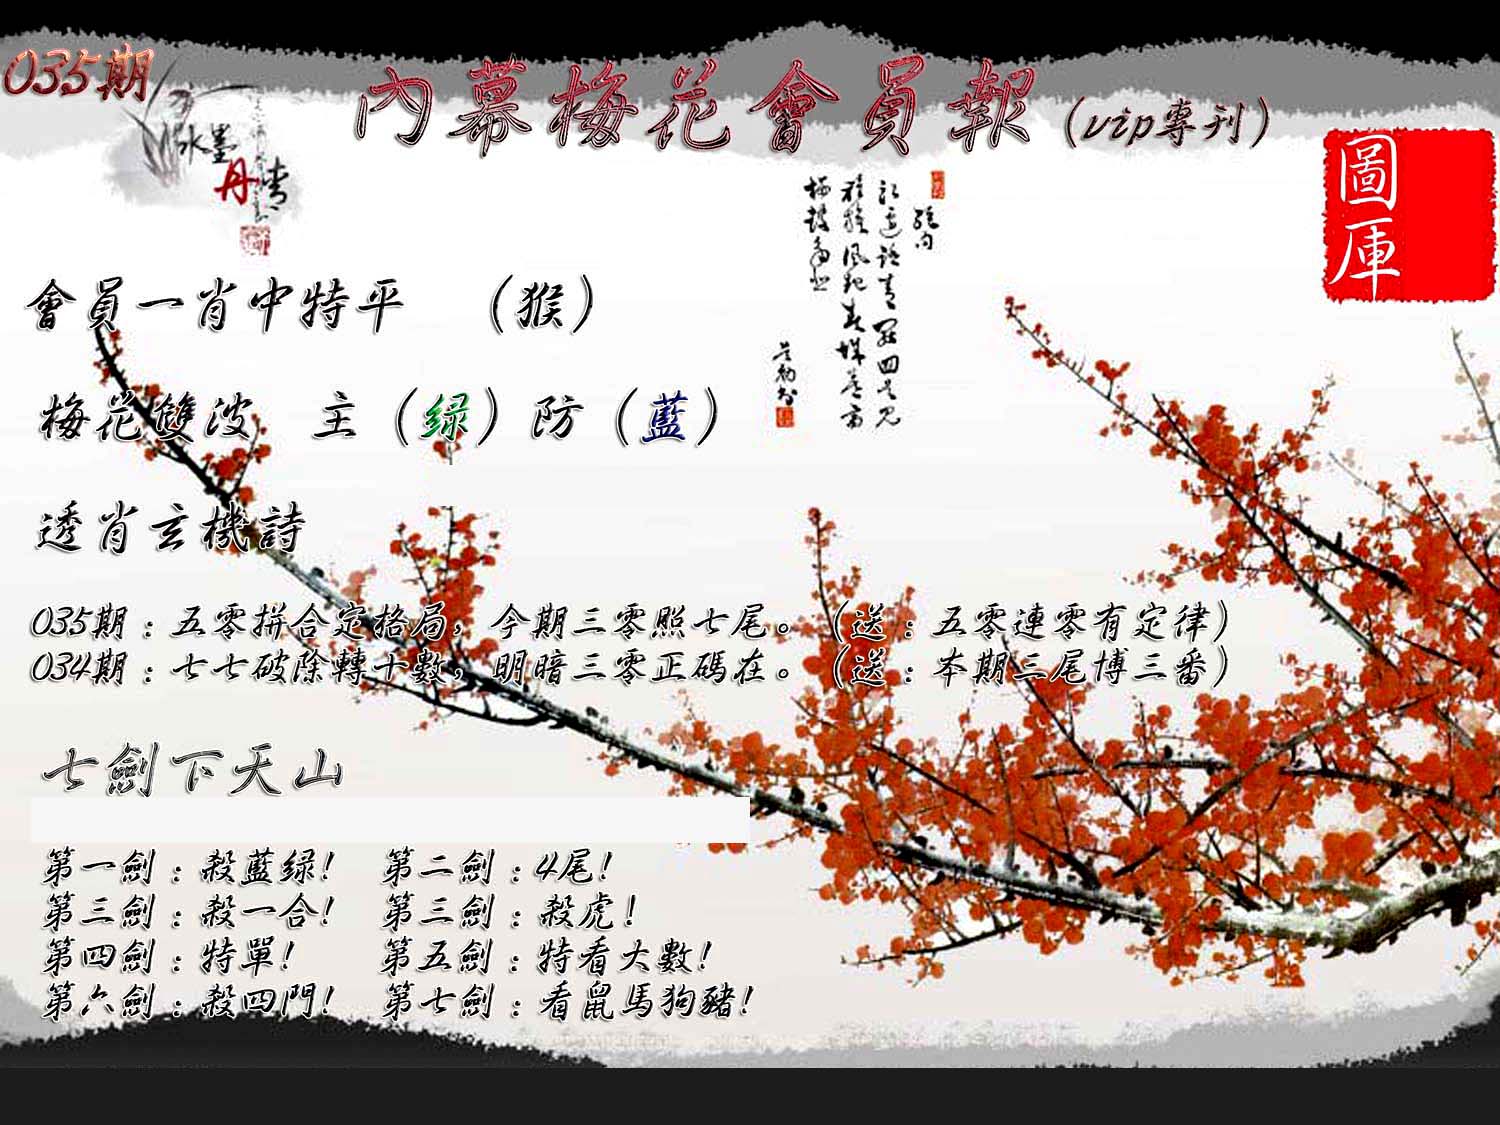 035期
內幕梅花會員報（vip專刊）
水墨
丹青
圖庫
會員一肖中特平　（猴）
梅花雙波　主（绿）防（藍）
透肖玄機詩
035期：五零拼合定格局，今期三零照七尾。（送：五零連零有定律）
034期：七七破除轉十數，明暗三零正碼在。（送：本期三尾博三番）
七劍下天山
第一劍：殺藍绿！　第二劍：4尾！
第三劍：殺一合！　第三劍：殺虎！
第四劍：特單！　第五劍：特看大數！
第六劍：殺四門！　第七劍：看鼠馬狗豬！